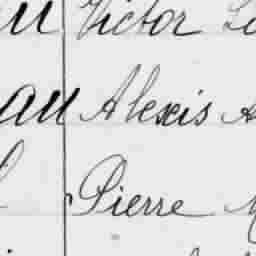 Victor
au Alexis A
Pierre